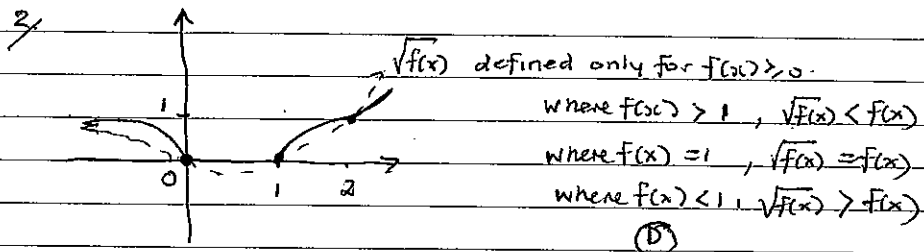 2/
√f(x) defined only for f(x) ≥ 0.
1
where f(x) > 1, √f(x) < f(x)
where f(x) = 1, √f(x) = f(x)
0 1 2
where f(x) < 1, √f(x) > f(x)
D